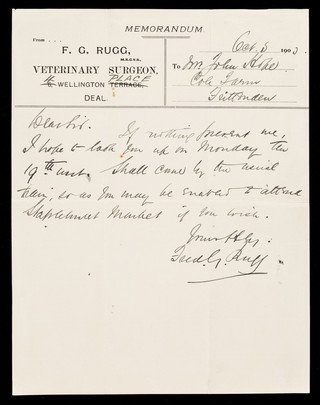 MEMORANDUM.
From
F. G. RUGG,
M.R.C.V.S.
VETERINARY SURGEON,
4 WELLINGTON TERRACE, PLACE
DEAL.
Oct. 3 1903.
To Mr. John Hope
Cole Farm
Bittenden
Dear Sir.
If nothing prevent me,
I hope to look you up on Monday the
19th inst. Shall come by the usual
train, so as you may be enabled to attend
Staplehurst Market if you wish.
Yours ffly.
Fred. G. Rugg